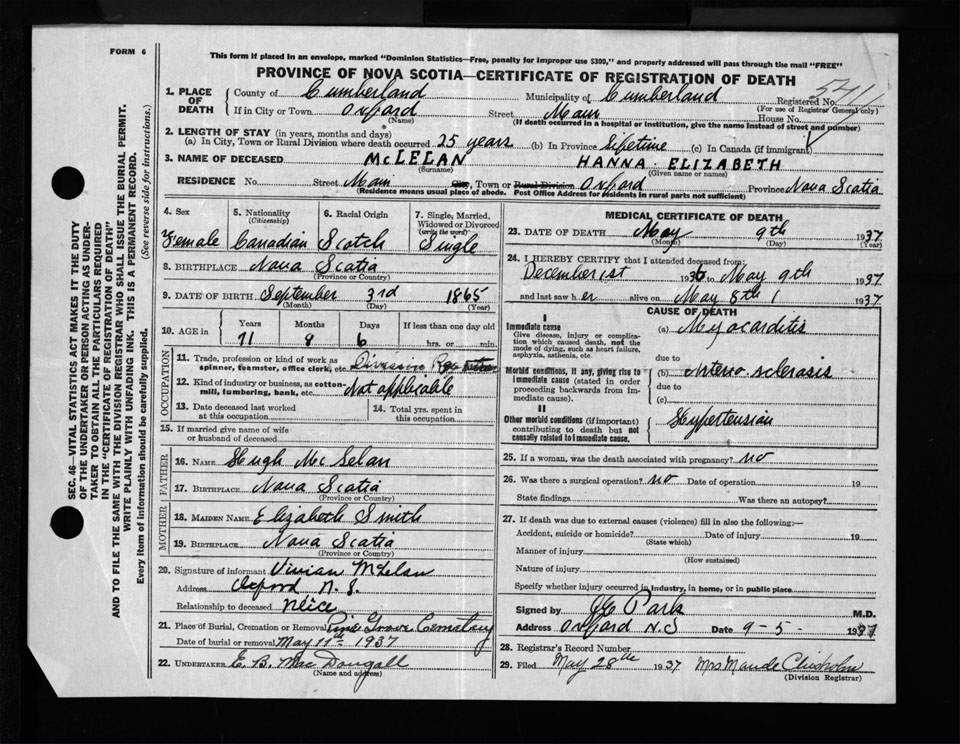 FORM 6
This form if placed in an envelope, marked "Dominion Statistics—Free, penalty for improper use $300," and properly addressed will pass through the mail "FREE"
PROVINCE OF NOVA SCOTIA—CERTIFICATE OF REGISTRATION OF DEATH
1. PLACE OF DEATH
County of Cumberland Municipality of Cumberland Registered No.
(For use of Registrar General only)
If in City or Town Oxford Street Main House No.
(Name) (If death occurred in a hospital or institution, give the name instead of street and number)
2. LENGTH OF STAY (in years, months and days)
(a) In City, Town or Rural Division where death occurred 25 years (b) In Province Lifetime (c) In Canada (if immigrant)
3. NAME OF DECEASED McLELAN HANNA ELIZABETH
(Surname) (Given name or names)
RESIDENCE No. Street Main City, Town or Rural Division Oxford Province Nova Scotia
(Residence means usual place of abode. Post Office Address for residents in rural parts not sufficient)
4. Sex
Female
5. Nationality
(Citizenship)
Canadian
6. Racial Origin
Scotch
7. Single, Married, Widowed or Divorced
(write the word)
Single
8. BIRTHPLACE Nova Scotia
(Province or Country)
9. DATE OF BIRTH September 3rd 1865
(Month) (Day) (Year)
10. AGE in
Years Months Days If less than one day
71 8 6 hrs. or min.
OCCUPATION
11. Trade, profession or kind of work as spinner, teamster, office clerk, etc. Division
12. Kind of industry or business, as cotton-mill, lumbering, bank, etc. Not applicable
13. Date deceased last worked at this occupation
14. Total yrs. spent in this occupation
15. If married give name of wife or husband of deceased
FATHER
16. NAME Hugh McLelan
17. BIRTHPLACE Nova Scotia
(Province or Country)
MOTHER
18. MAIDEN NAME Elizabeth Smith
19. BIRTHPLACE Nova Scotia
(Province or Country)
20. Signature of informant Vivian McLelan
Address Oxford N.S.
Relationship to deceased Neice
21. Place of Burial, Cremation or Removal Pine Grove Cemetery
Date of burial or removal May 11th 1937
22. UNDERTAKER E. B. MacDougall
(Name and address)
MEDICAL CERTIFICATE OF DEATH
23. DATE OF DEATH May 9th 1937
(Month) (Day) (Year)
24. I HEREBY CERTIFY that I attended deceased from:
December 1st 1936 to May 9th 1937
and last saw her alive on May 8th 1937
CAUSE OF DEATH
I
Immediate cause
Give disease, injury or complication which caused death, not the mode of dying, such as heart failure, asphyxia, asthenia, etc.
(a) Myocarditis
due to
Morbid conditions, if any, giving rise to immediate cause (stated in order proceeding backwards from immediate cause).
(b) Arterio-sclerosis
due to
(c)
II
Other morbid conditions (if important) contributing to death but not causally related to immediate cause.
Hypertension
25. If a woman, was the death associated with pregnancy? no
26. Was there a surgical operation? no Date of operation 19
State findings Was there an autopsy?
27. If death was due to external causes (violence) fill in also the following:—
Accident, suicide or homicide? Date of injury 19
(State which)
Manner of injury
(How sustained)
Nature of injury
Specify whether injury occurred in industry, in home, or in public place
Signed by Park M.D.
Address Oxford N.S Date 9-5- 1937
28. Registrar's Record Number
29. Filed May 28th 1937 Mrs Maude Chisholm
(Division Registrar)
SEC. 46—VITAL STATISTICS ACT MAKES IT THE DUTY
OF THE UNDERTAKER OR PERSON ACTING AS UNDER-
TAKER TO OBTAIN ALL THE PARTICULARS REQUIRED
IN THE "CERTIFICATE OF REGISTRATION OF DEATH"
AND TO FILE THE SAME WITH THE DIVISION REGISTRAR WHO SHALL ISSUE THE BURIAL PERMIT.
WRITE PLAINLY WITH UNFADING INK. THIS IS A PERMANENT RECORD.
Every item of information should be carefully supplied. (See reverse side for instructions.)